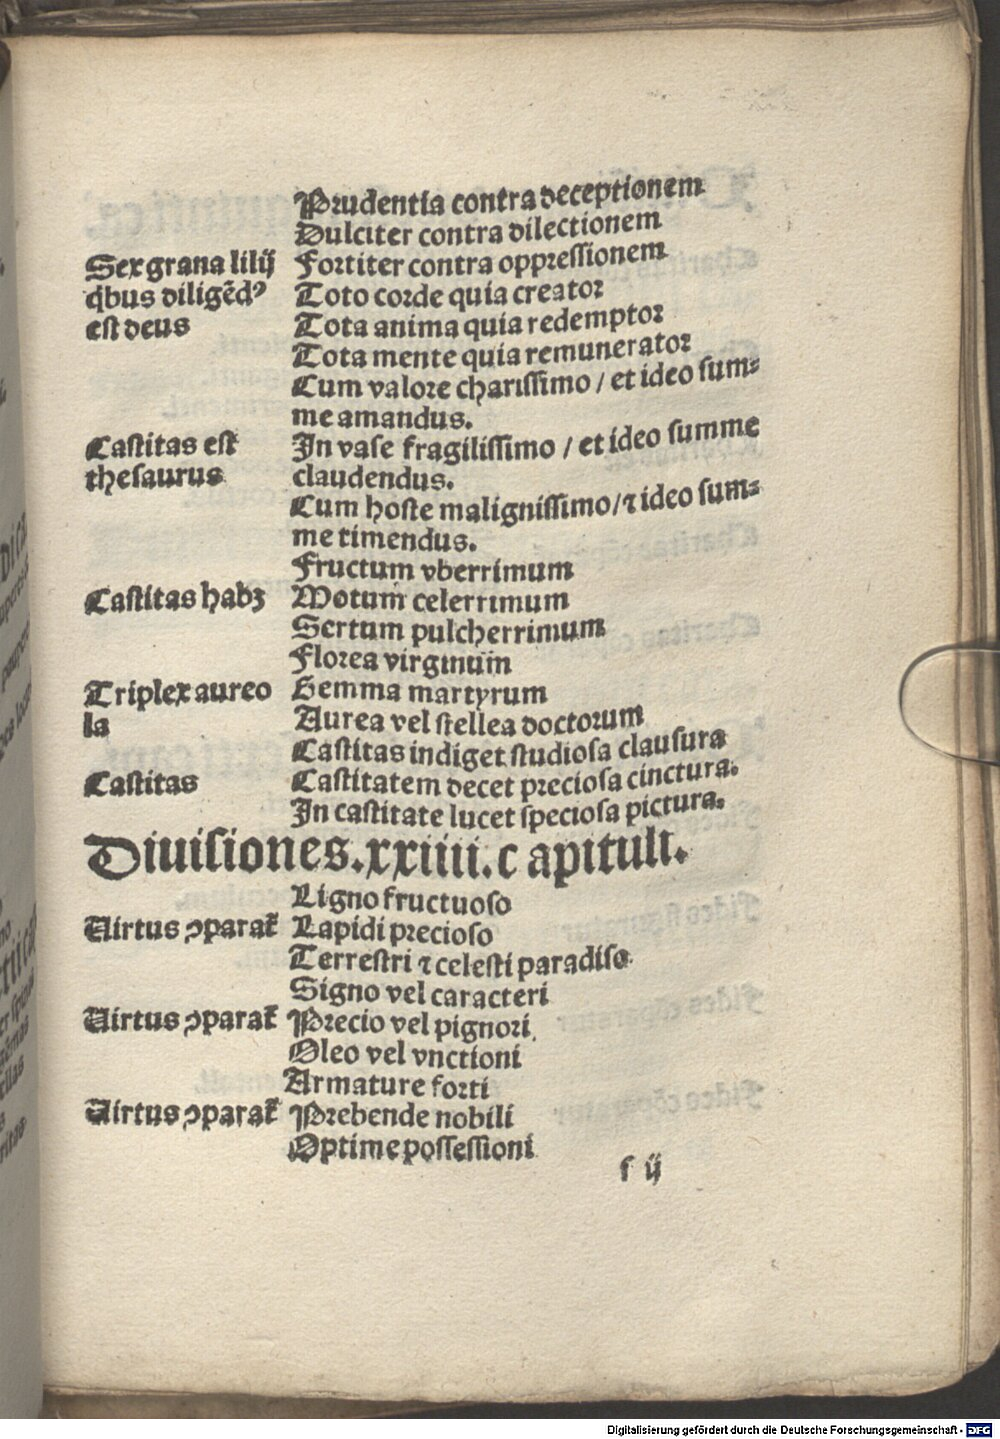 Prudentia contra deceptionem
Dulciter contra dilectionem
Sex grana lilij Fortiter contra oppressionem
q̇bus diligẽdꝰ Toto corde quia creator
est deus Tota anima quia redemptor
Tota mente quia remunerator
Cum valore charissimo / et ideo sum⸗
me amandus.
Castitas est In vase fragilissimo / et ideo summe
thesaurus claudendus.
Cum hoste malignissimo / ⁊ ideo sum⸗
me timendus.
Fructum vberrimum
Castitas habꝫ Motum celerrimum
Sertum pulcherrimum
Florea virginum
Triplex aureo Gemma martyrum
la Aurea vel stellea doctorum
Castitas indiget studiosa clausura
Castitas Castitatem decet preciosa cinctura.
In castitate lucet speciosa pictura.
Diuisiones.xxiiii.capituli.
Ligno fructuoso
Uirtus ↄparat̃ Lapidi precioso
Terrestri ⁊ celesti paradiso
Signo vel caracteri
Uirtus ↄparat̃ Precio vel pignori
Oleo vel vnctioni
Armature forti
Uirtus ↄparat̃ Prebende nobili
Optime possessioni
f ij
Digitalisierung gefördert durch die Deutsche Forschungsgemeinschaft - DFG